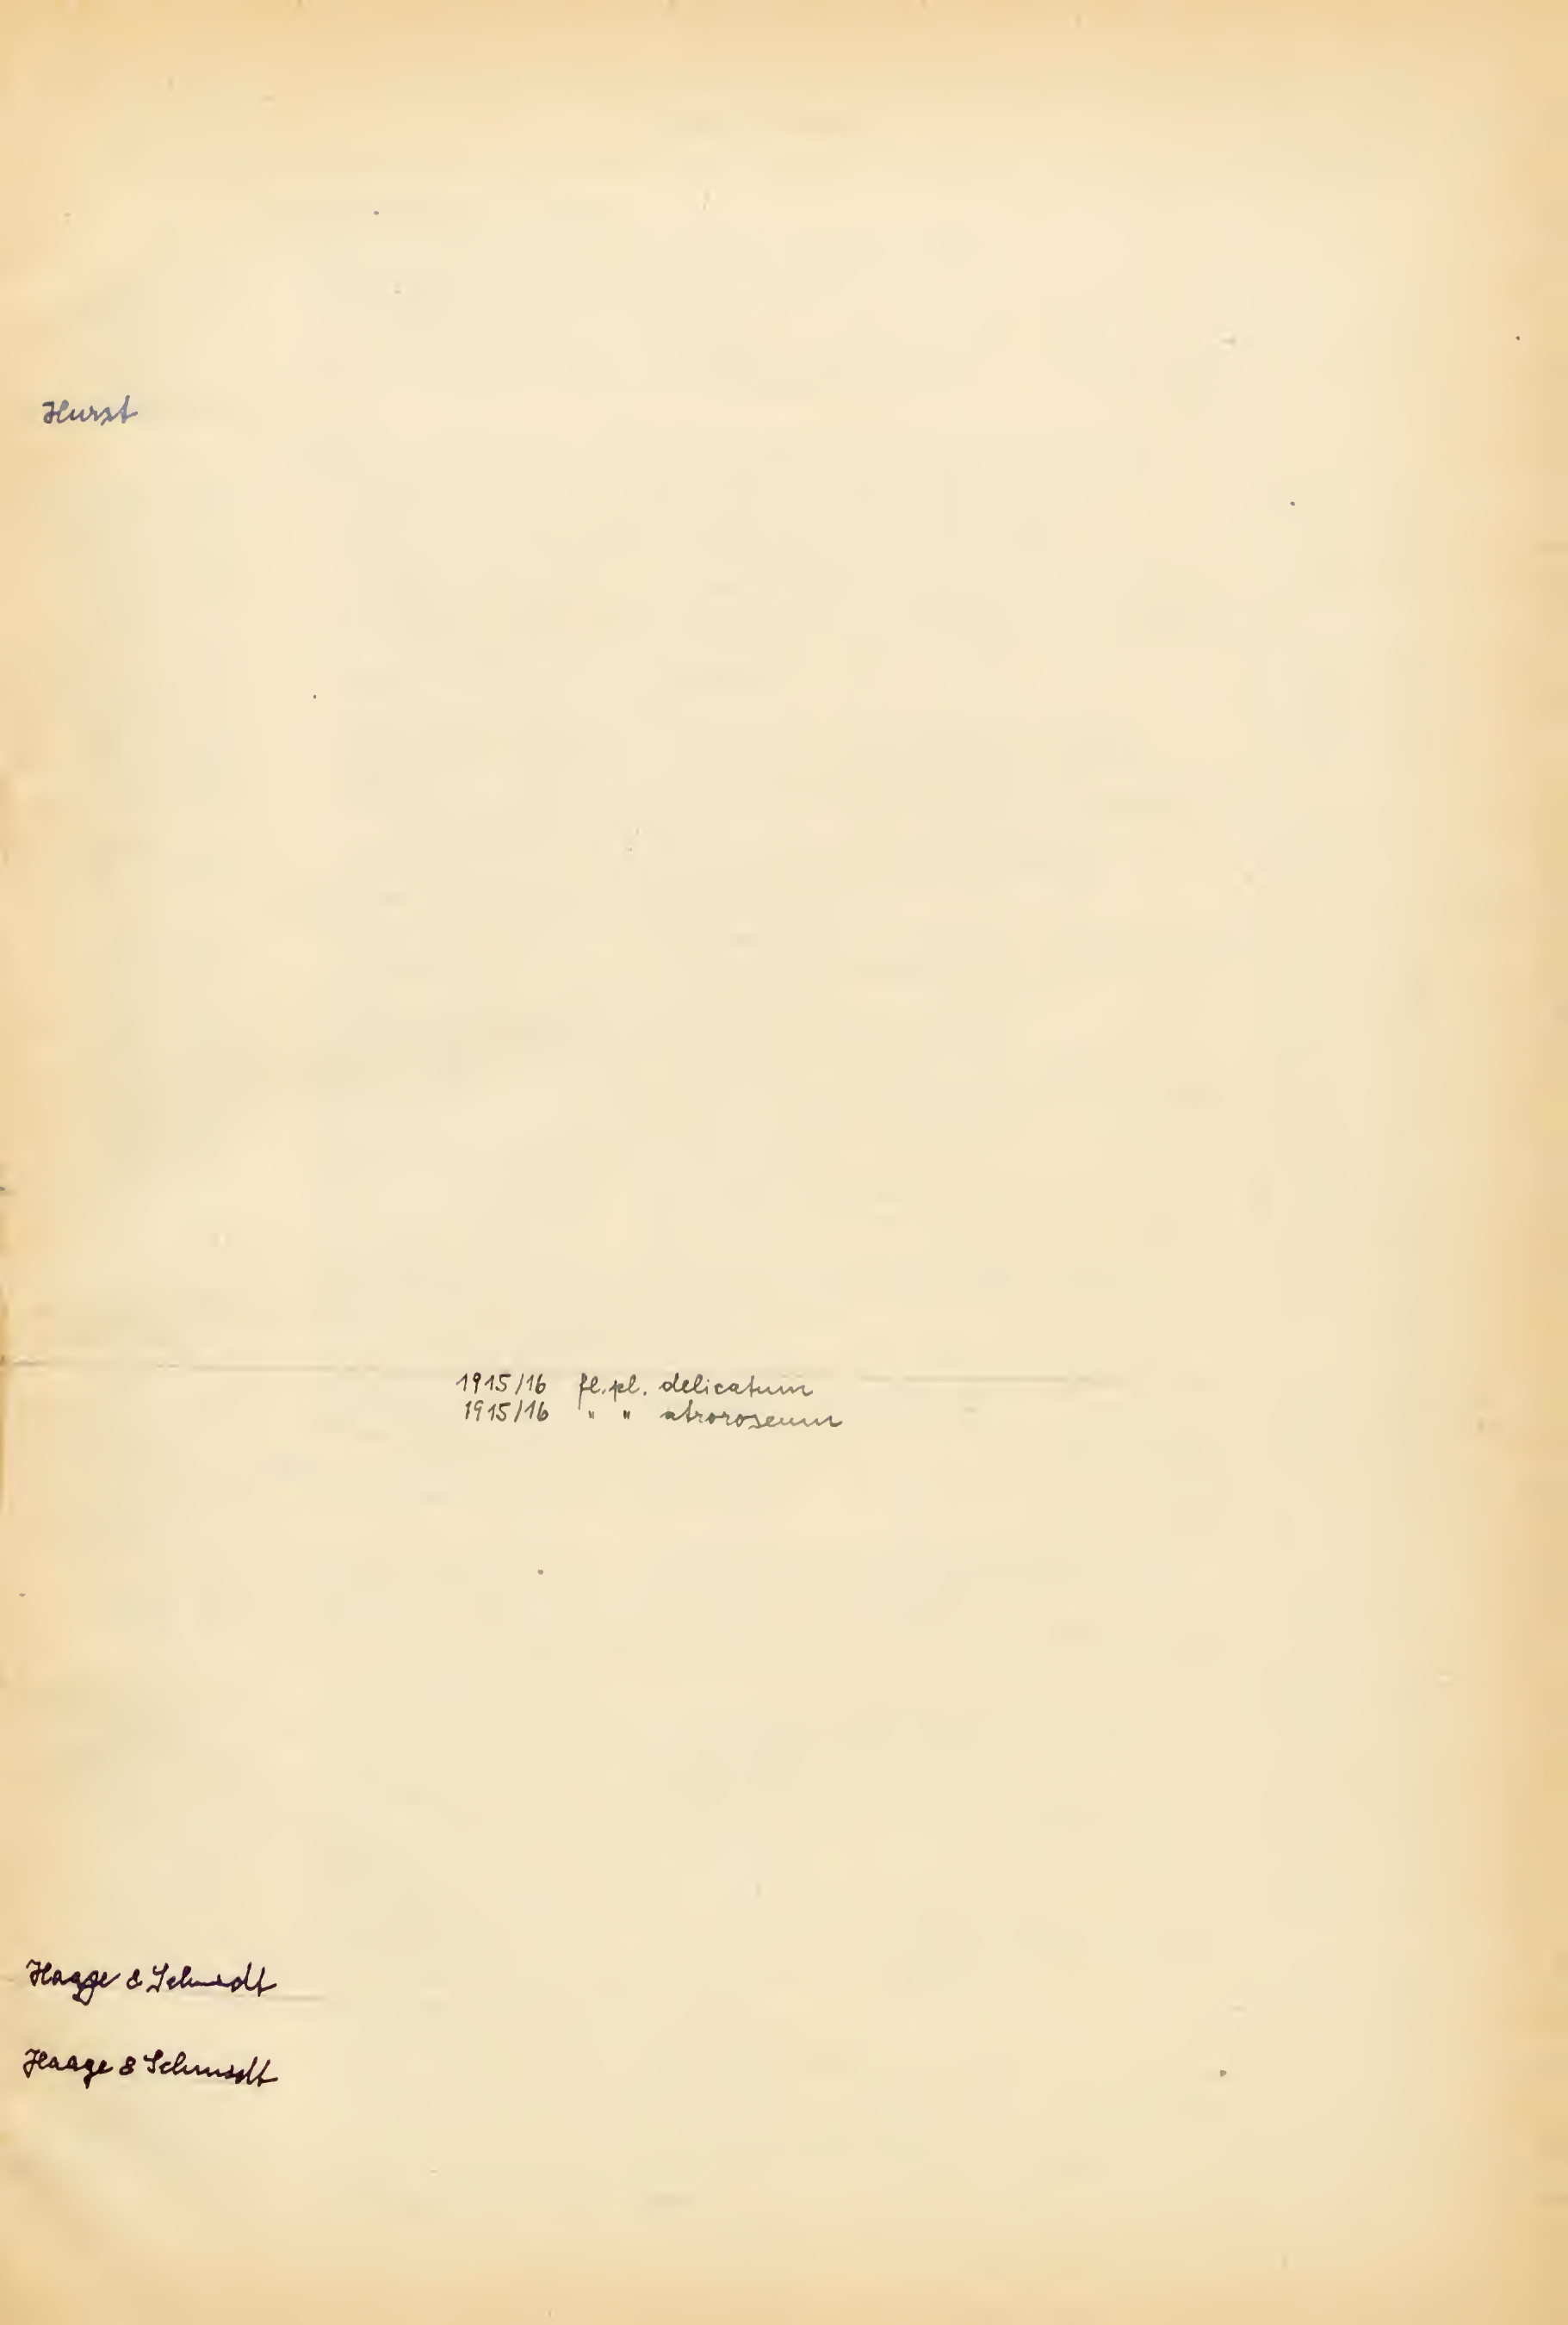 Hurst
1915/16 fl. pl. delicatum
1915/16 " " atroroseum
Haage & Schmidt
Haage & Schmidt